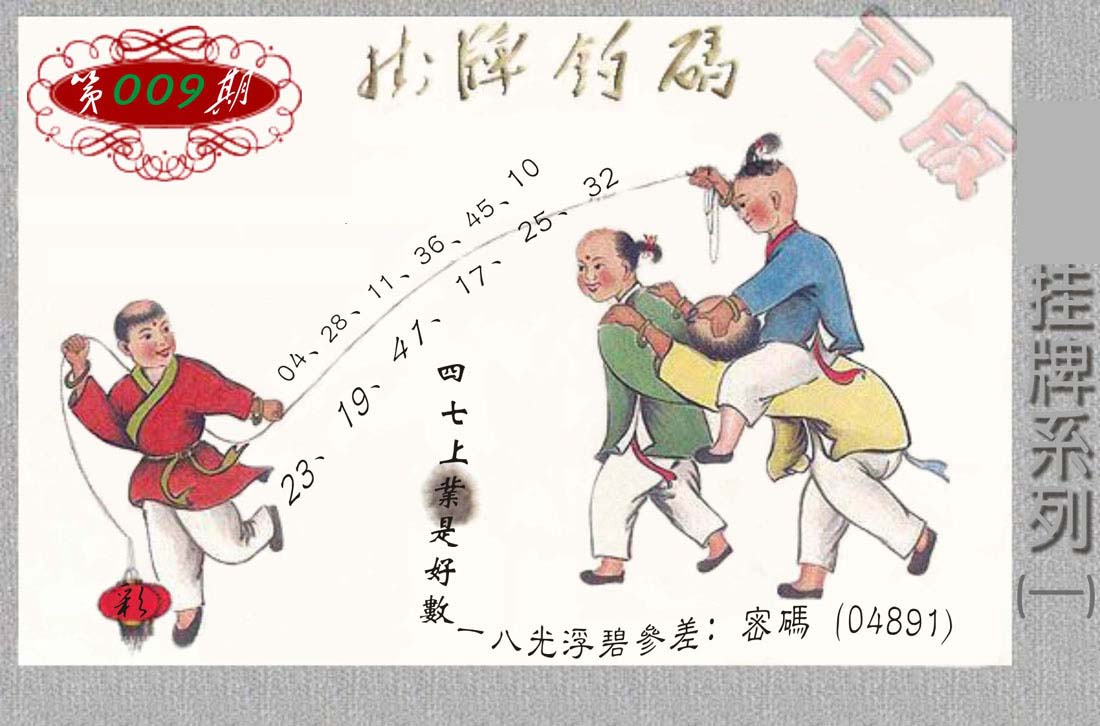 第009期
掛牌釣碼
正版
04、28、11、36、45、10
23、19、41、17、25、32
四七上業是好數
一八光浮碧參差：密碼（04891）
彩
挂牌系列(一)